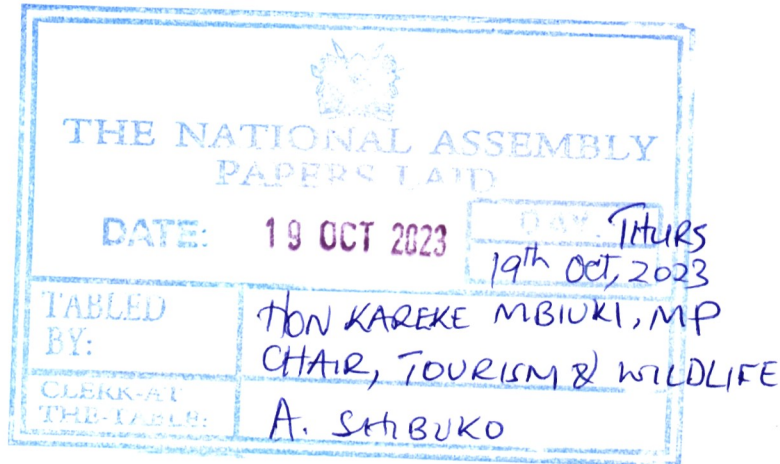 THE NATIONAL ASSEMBLY
PAPERS LAID
DATE: 19 OCT 2023 DAY. THURS
19th Oct, 2023
TABLED BY: HON KAREKE MBIUKI, MP
CHAIR, TOURISM & WILDLIFE
CLERK-AT THE-TABLE: A. SHIBUKO